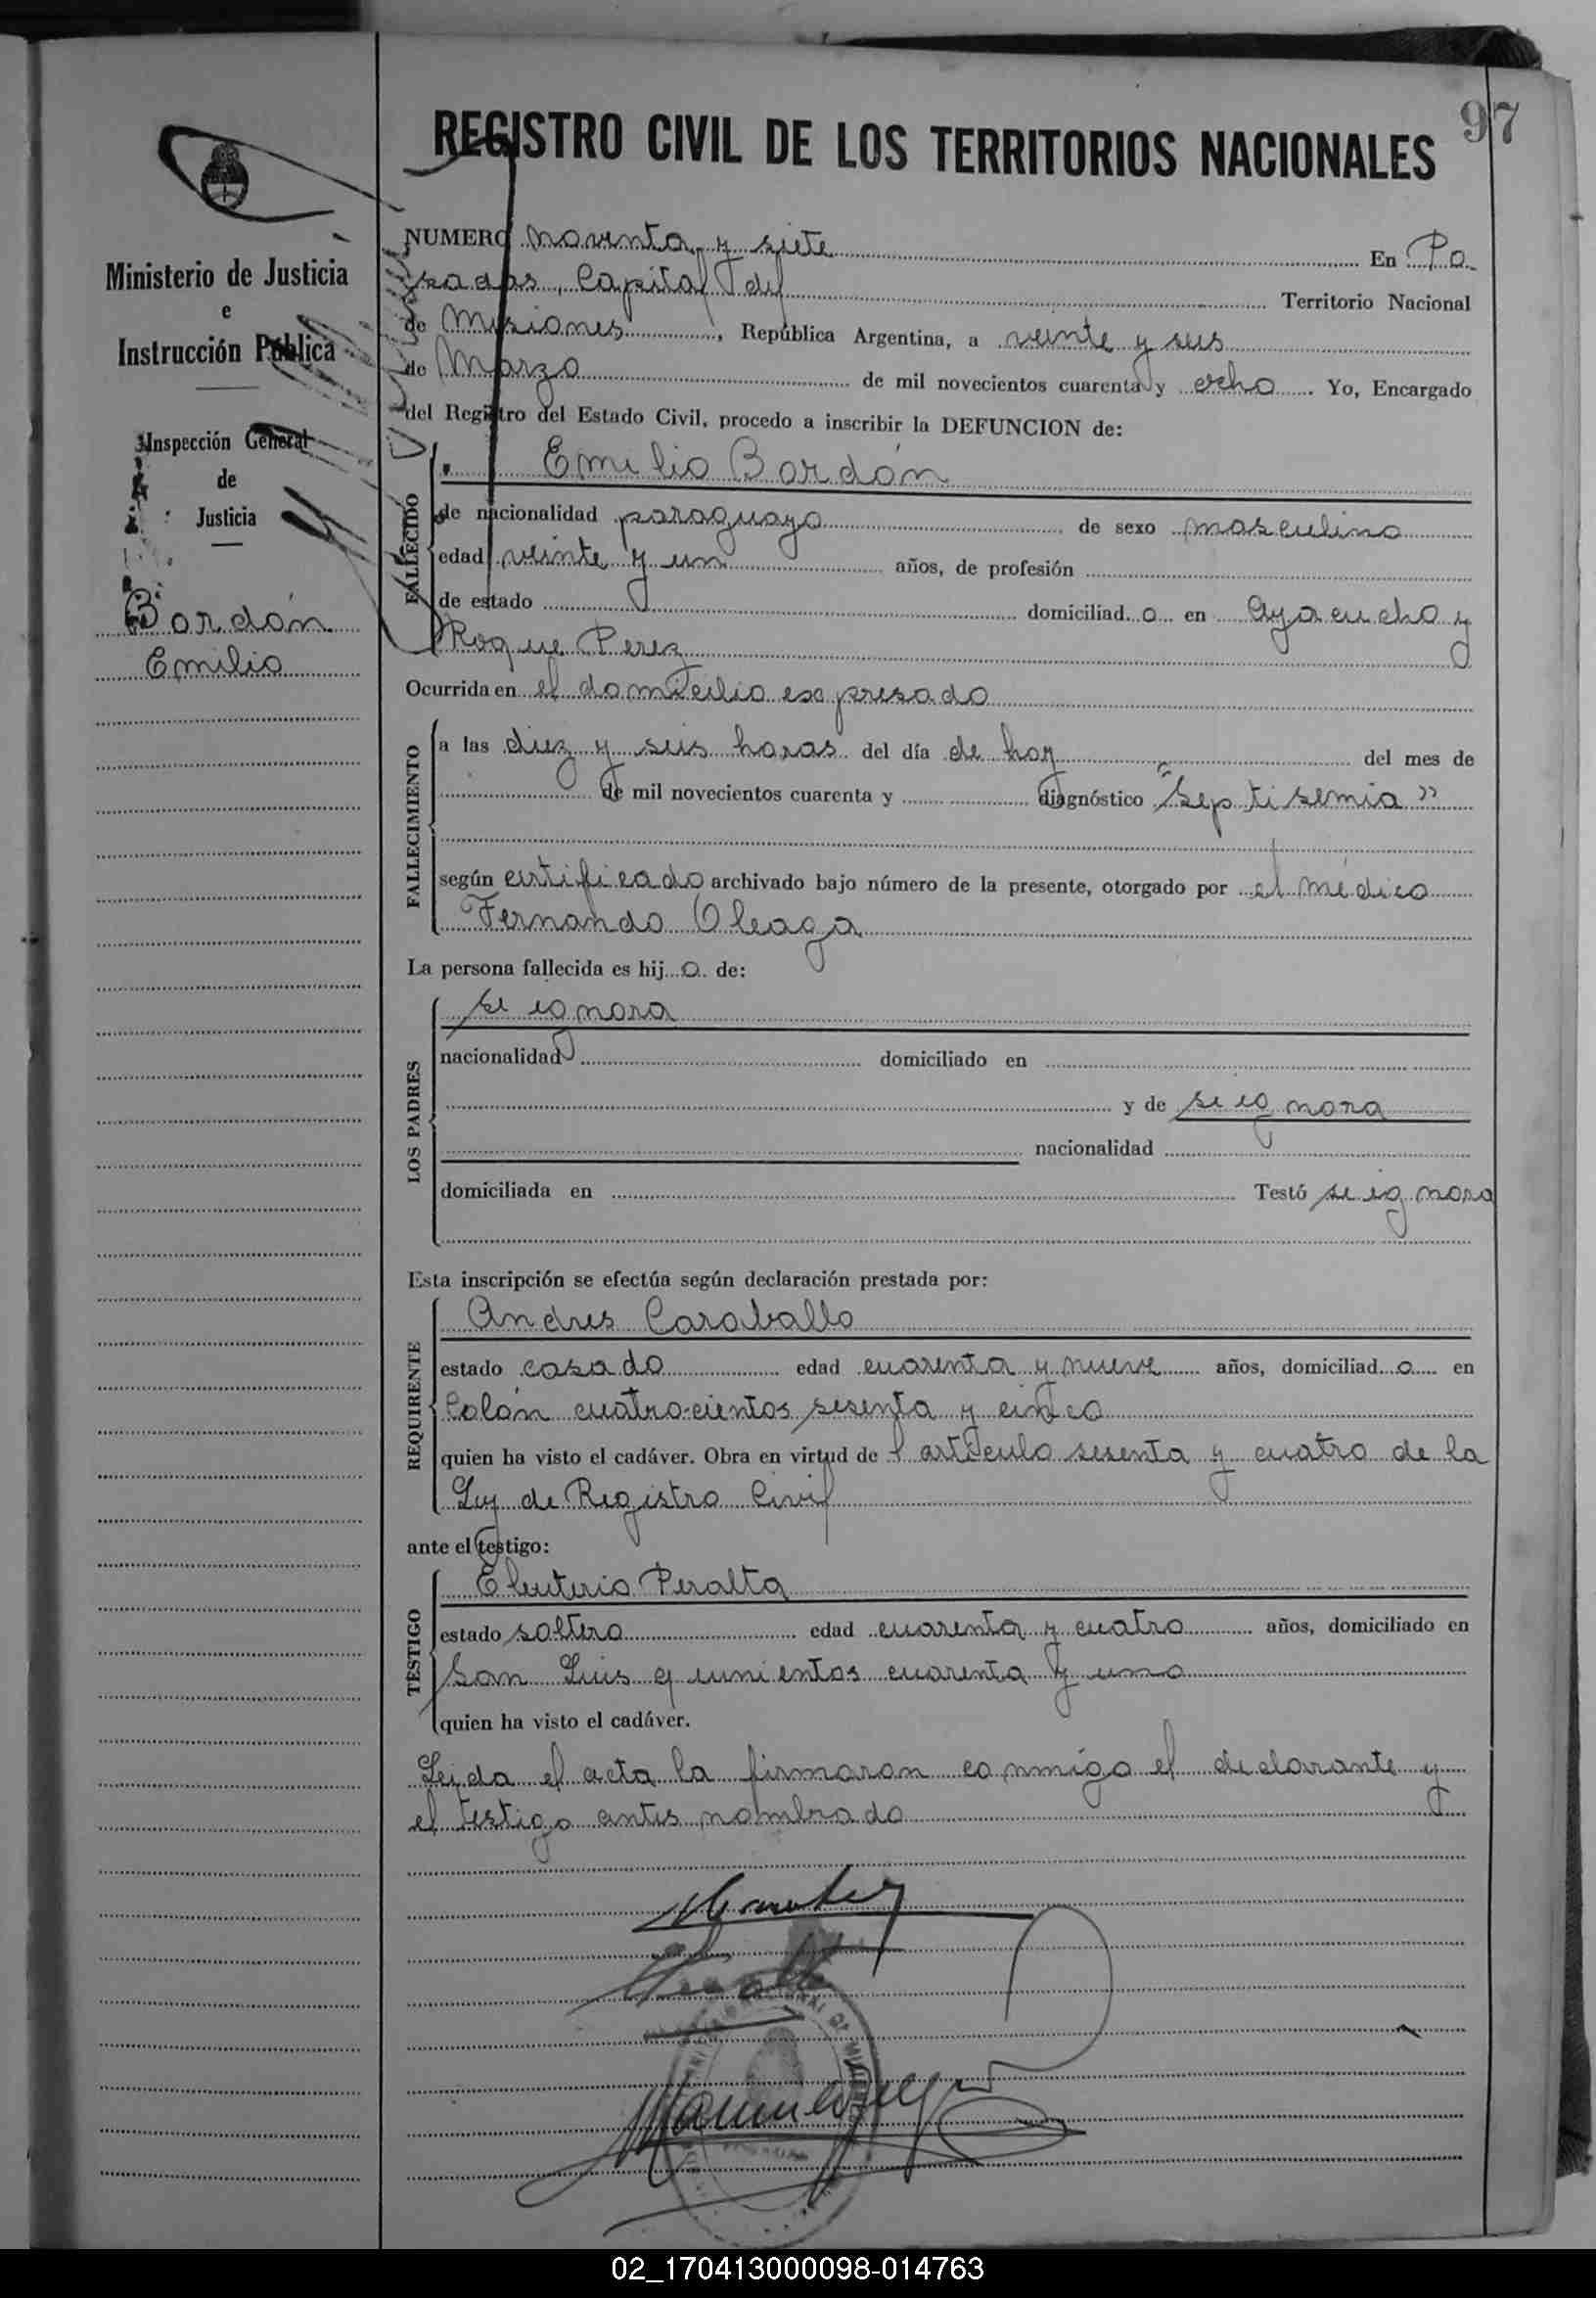 97
REGISTRO CIVIL DE LOS TERRITORIOS NACIONALES
Ministerio de Justicia
e
Instrucción Pública
Inspección General
de
Justicia
Bordón
Emilio
NUMERO noventa y siete En Po
sadas, Capital del Territorio Nacional
de Misiones, República Argentina, a veinte y seis
de Marzo de mil novecientos cuarenta y ocho. Yo, Encargado
del Registro del Estado Civil, procedo a inscribir la DEFUNCION de:
FALLECIDO
Emilio Bordón
de nacionalidad paraguayo de sexo masculino
edad veinte y un años, de profesión
de estado domiciliad o en Ayacucho y
Roque Perez
Ocurrida en el domicilio expresado
FALLECIMIENTO
a las diez y seis horas del día de hoy del mes de
de mil novecientos cuarenta y diagnóstico "Septisemia"
según certificado archivado bajo número de la presente, otorgado por el médico
Fernando Oleaga
La persona fallecida es hij o de:
LOS PADRES
se ignora
nacionalidad domiciliado en
y de se ignora
nacionalidad
domiciliada en Testó se ignora
Esta inscripción se efectúa según declaración prestada por:
REQUIRENTE
Andres Caraballo
estado casado edad cuarenta y nueve años, domiciliad o en
Colón cuatrocientos sesenta y cinco
quien ha visto el cadáver. Obra en virtud de l artículo sesenta y cuatro de la
Ley de Registro Civil
ante el testigo:
TESTIGO
Eleuterio Peralta
estado soltero edad cuarenta y cuatro años, domiciliado en
San Luis quinientos cuarenta y uno
quien ha visto el cadáver.
Leida el acta la firmaron conmigo el declarante y
el testigo antes nombrado
02_170413000098-014763